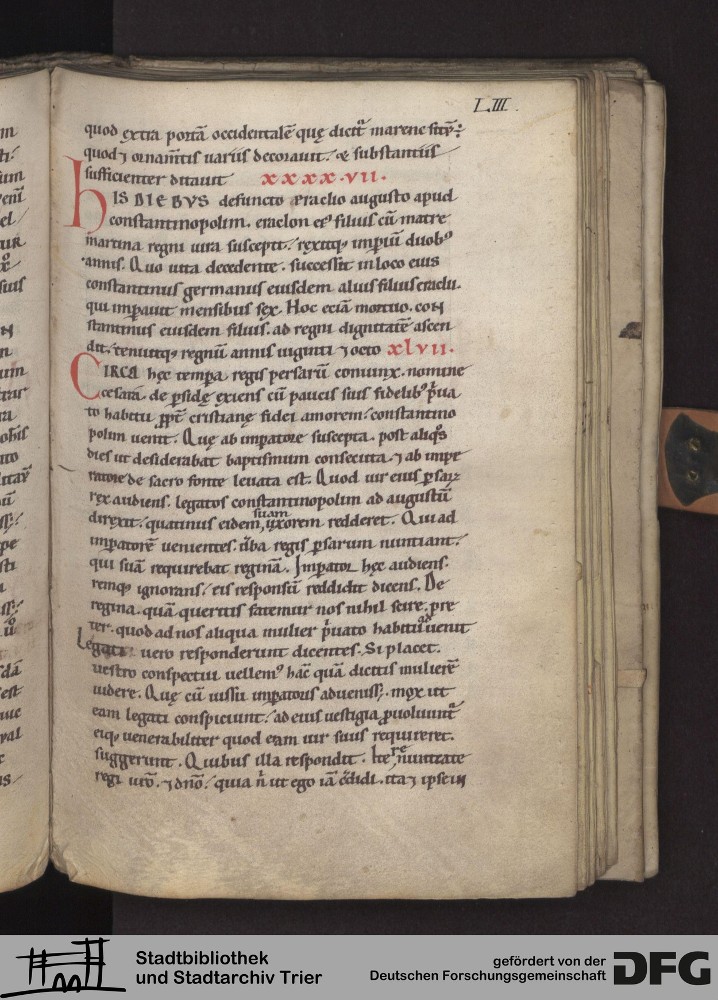 LIII.
quod extra portā occidentalē quę dicit᷑ marene sit᷑
quod ⁊ ornam̄tis uariis decorauit. & substantiis
sufficienter ditauit xxxx.vii.
HIS DIEBUS defuncto eraclio augusto apud
constantinopolim. eraclon ei᷒ filius cū matre
martina regni iura suscepit. rexitq; imp̄iū duob᷒
annis. Quo uita decedente. successit in loco eius
constantinus germanus eiusdem. alius filius eraclii.
qui imꝑauit mensibus sex. Hoc eciā mortuo. con
stantinus eiusdem filius. ad regni dignitatē ascen
dit. tenuitq; regnū annis uiginti ⁊ octo xlvii.
CIRCA hęc temꝑa regis persarū coniunx. nomine
cesara. de ꝑside exiens cū paucis suis fidelib᷒ p̄ua
to habitu ꝓpt̄ cristianę fidei amorem. constantino
polim uenit. Quę ab imꝑatore suscepta. post aliq̇s
dies ut desiderabat baptismum consecuta. ⁊ ab impe
ratore de sacro fonte leuata est. Quod uir eius ꝑsaꝝ
rex audiens. legatos constantinopolim ad augustū
direxit. quatinus eidem suam uxorem redderet. Qui ad
imꝑatorē uenientes. ūba regis ꝑsarum nuntiant.
qui suā requirebat reginā. Imꝑator hęc audiens.
remq; ignorans. eis responsū reddidit dicens. De
regina. quā queritis fatemur nos nihil scire. pre
ter. quod ad nos aliqua mulier p̄uato habitu aduenit
Legati uero responderunt dicentes. Si placet.
uestro conspectui uellem᷒ hāc quā dicitis mulierē
uidere. Quę cū iussu imꝑatoris aduenisset. mox ut
eam legati conspiciunt. ad eius uestigia ꝓuoluunt᷑
eiq; venerabiliter quod eam uir suus requireret.
suggerunt. Quibus illa respondit. Ite renuntiate
regi uro. ⁊ dn̄o. quia n̄ ut ego iā c̄didi. ita ⁊ ipse in
Stadtbibliothek
und Stadtarchiv Trier
gefördert von der
Deutschen Forschungsgemeinschaft
DFG